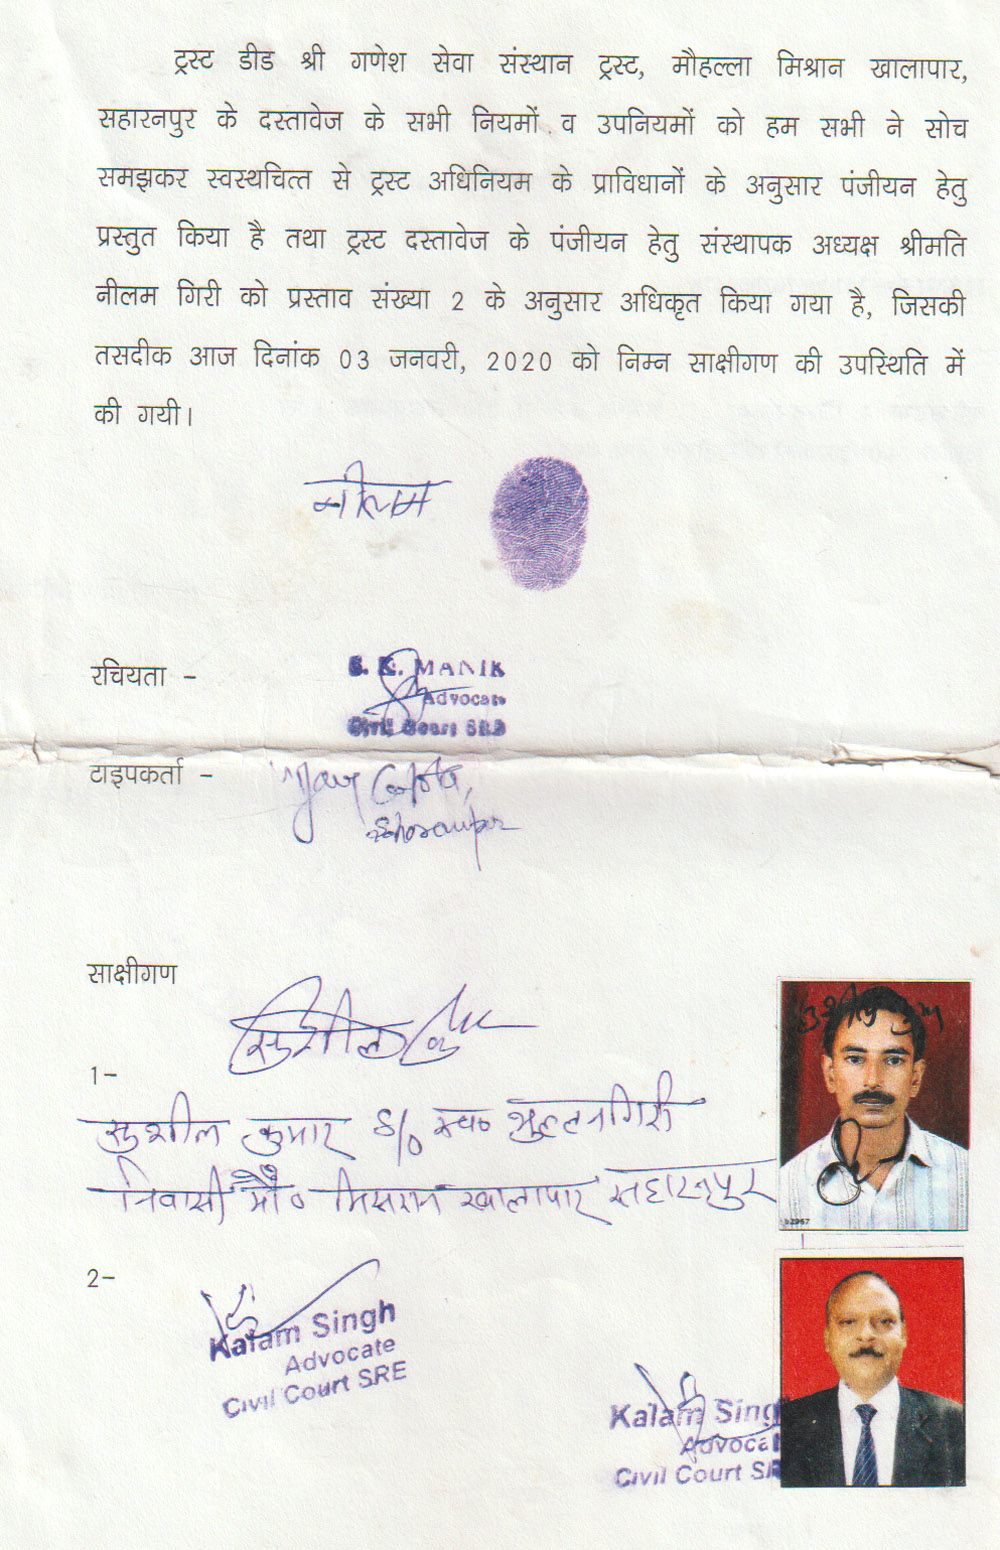 ट्रस्ट डीड श्री गणेश सेवा संस्थान ट्रस्ट, मौहल्ला मिश्रान खालापार,
सहारनपुर के दस्तावेज के सभी नियमों व उपनियमों को हम सभी ने सोच
समझकर स्वस्थचित्त से ट्रस्ट अधिनियम के प्राविधानों के अनुसार पंजीयन हेतु
प्रस्तुत किया है तथा ट्रस्ट दस्तावेज के पंजीयन हेतु संस्थापक अध्यक्ष श्रीमति
नीलम गिरी को प्रस्ताव संख्या 2 के अनुसार अधिकृत किया गया है, जिसकी
तसदीक आज दिनांक 03 जनवरी, 2020 को निम्न साक्षीगण की उपस्थिति में
की गयी।
नीलम
रचियता -
S. K. MANIK
Advocate
Civil Court SRE
टाइपकर्ता -
साक्षीगण
सुशील
1-
सुशील कुमार S/o स्व०
निवासी मौ० मिसरान खालापार सहारनपुर
2-
Kalam Singh
Advocate
Civil Court SRE
Kalam Sing
Advocat
Civil Court SR